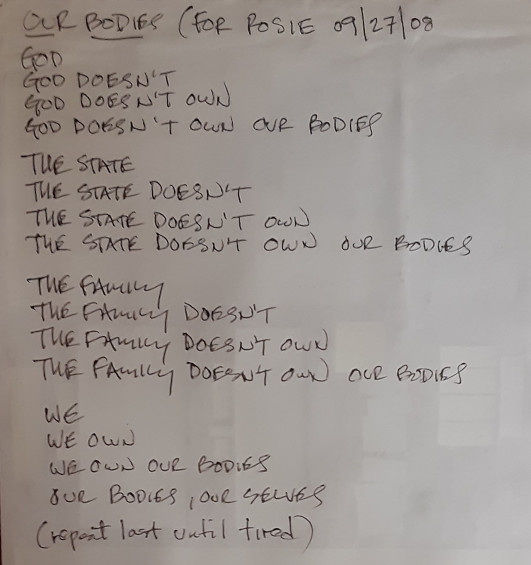 OUR BODIES (FOR ROSIE 09/27/08
GOD
GOD DOESN'T
GOD DOESN'T OWN
GOD DOESN'T OWN OUR BODIES
THE STATE
THE STATE DOESN'T
THE STATE DOESN'T OWN
THE STATE DOESN'T OWN OUR BODIES
THE FAMILY
THE FAMILY DOESN'T
THE FAMILY DOESN'T OWN
THE FAMILY DOESN'T OWN OUR BODIES
WE
WE OWN
WE OWN OUR BODIES
OUR BODIES, OUR SELVES
(repeat last until tired)